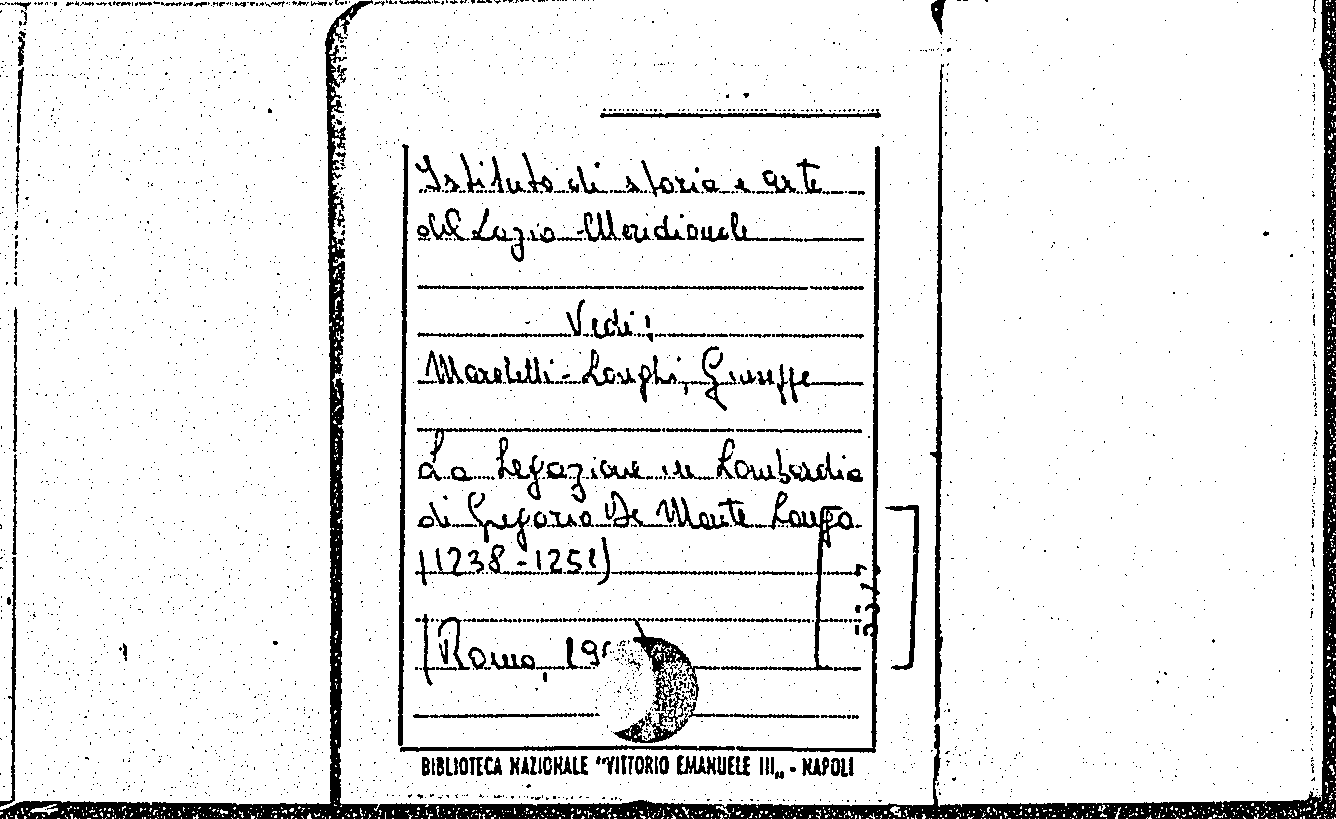 Istituto di storia e arte
del Lazio Meridionale
Vedi!
Marchetti-Longhi, Giuseppe
La Legazione in Lombardia
di Gregorio De Monte Longo
(1238-1251)
(Roma, 19
BIBLIOTECA NAZIONALE "VITTORIO EMANUELE III„ - NAPOLI